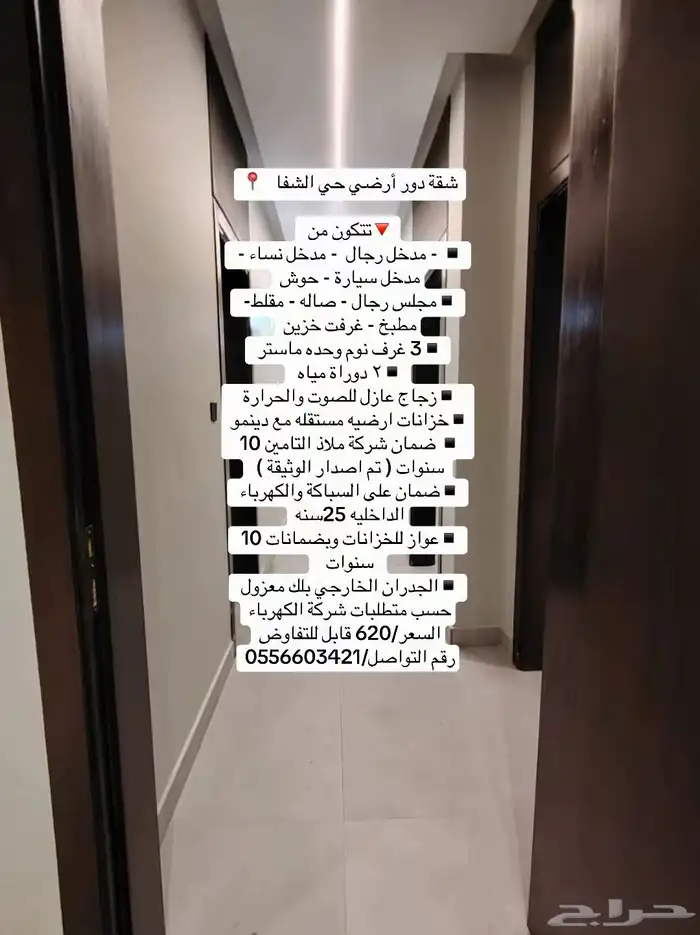 شقة دور أرضي حي الشفا 📍
🔻تتكون من
▪️ - مدخل رجال - مدخل نساء -
مدخل سيارة - حوش
▪️مجلس رجال - صاله - مقلط-
مطبخ - غرفت خزين
▪️3 غرف نوم وحده ماستر
▪️٢ دوراة مياه
▪️زجاج عازل للصوت والحرارة
▪️خزانات ارضيه مستقله مع دينمو
▪️ ضمان شركة ملاذ التامين 10
سنوات ( تم اصدار الوثيقة )
▪️ضمان على السباكة والكهرباء
الداخليه 25سنه
▪️عواز للخزانات وبضمانات 10
سنوات
▪️الجدران الخارجي بلك معزول
حسب متطلبات شركة الكهرباء
السعر/620 قابل للتفاوض
رقم التواصل/0556603421
حراج